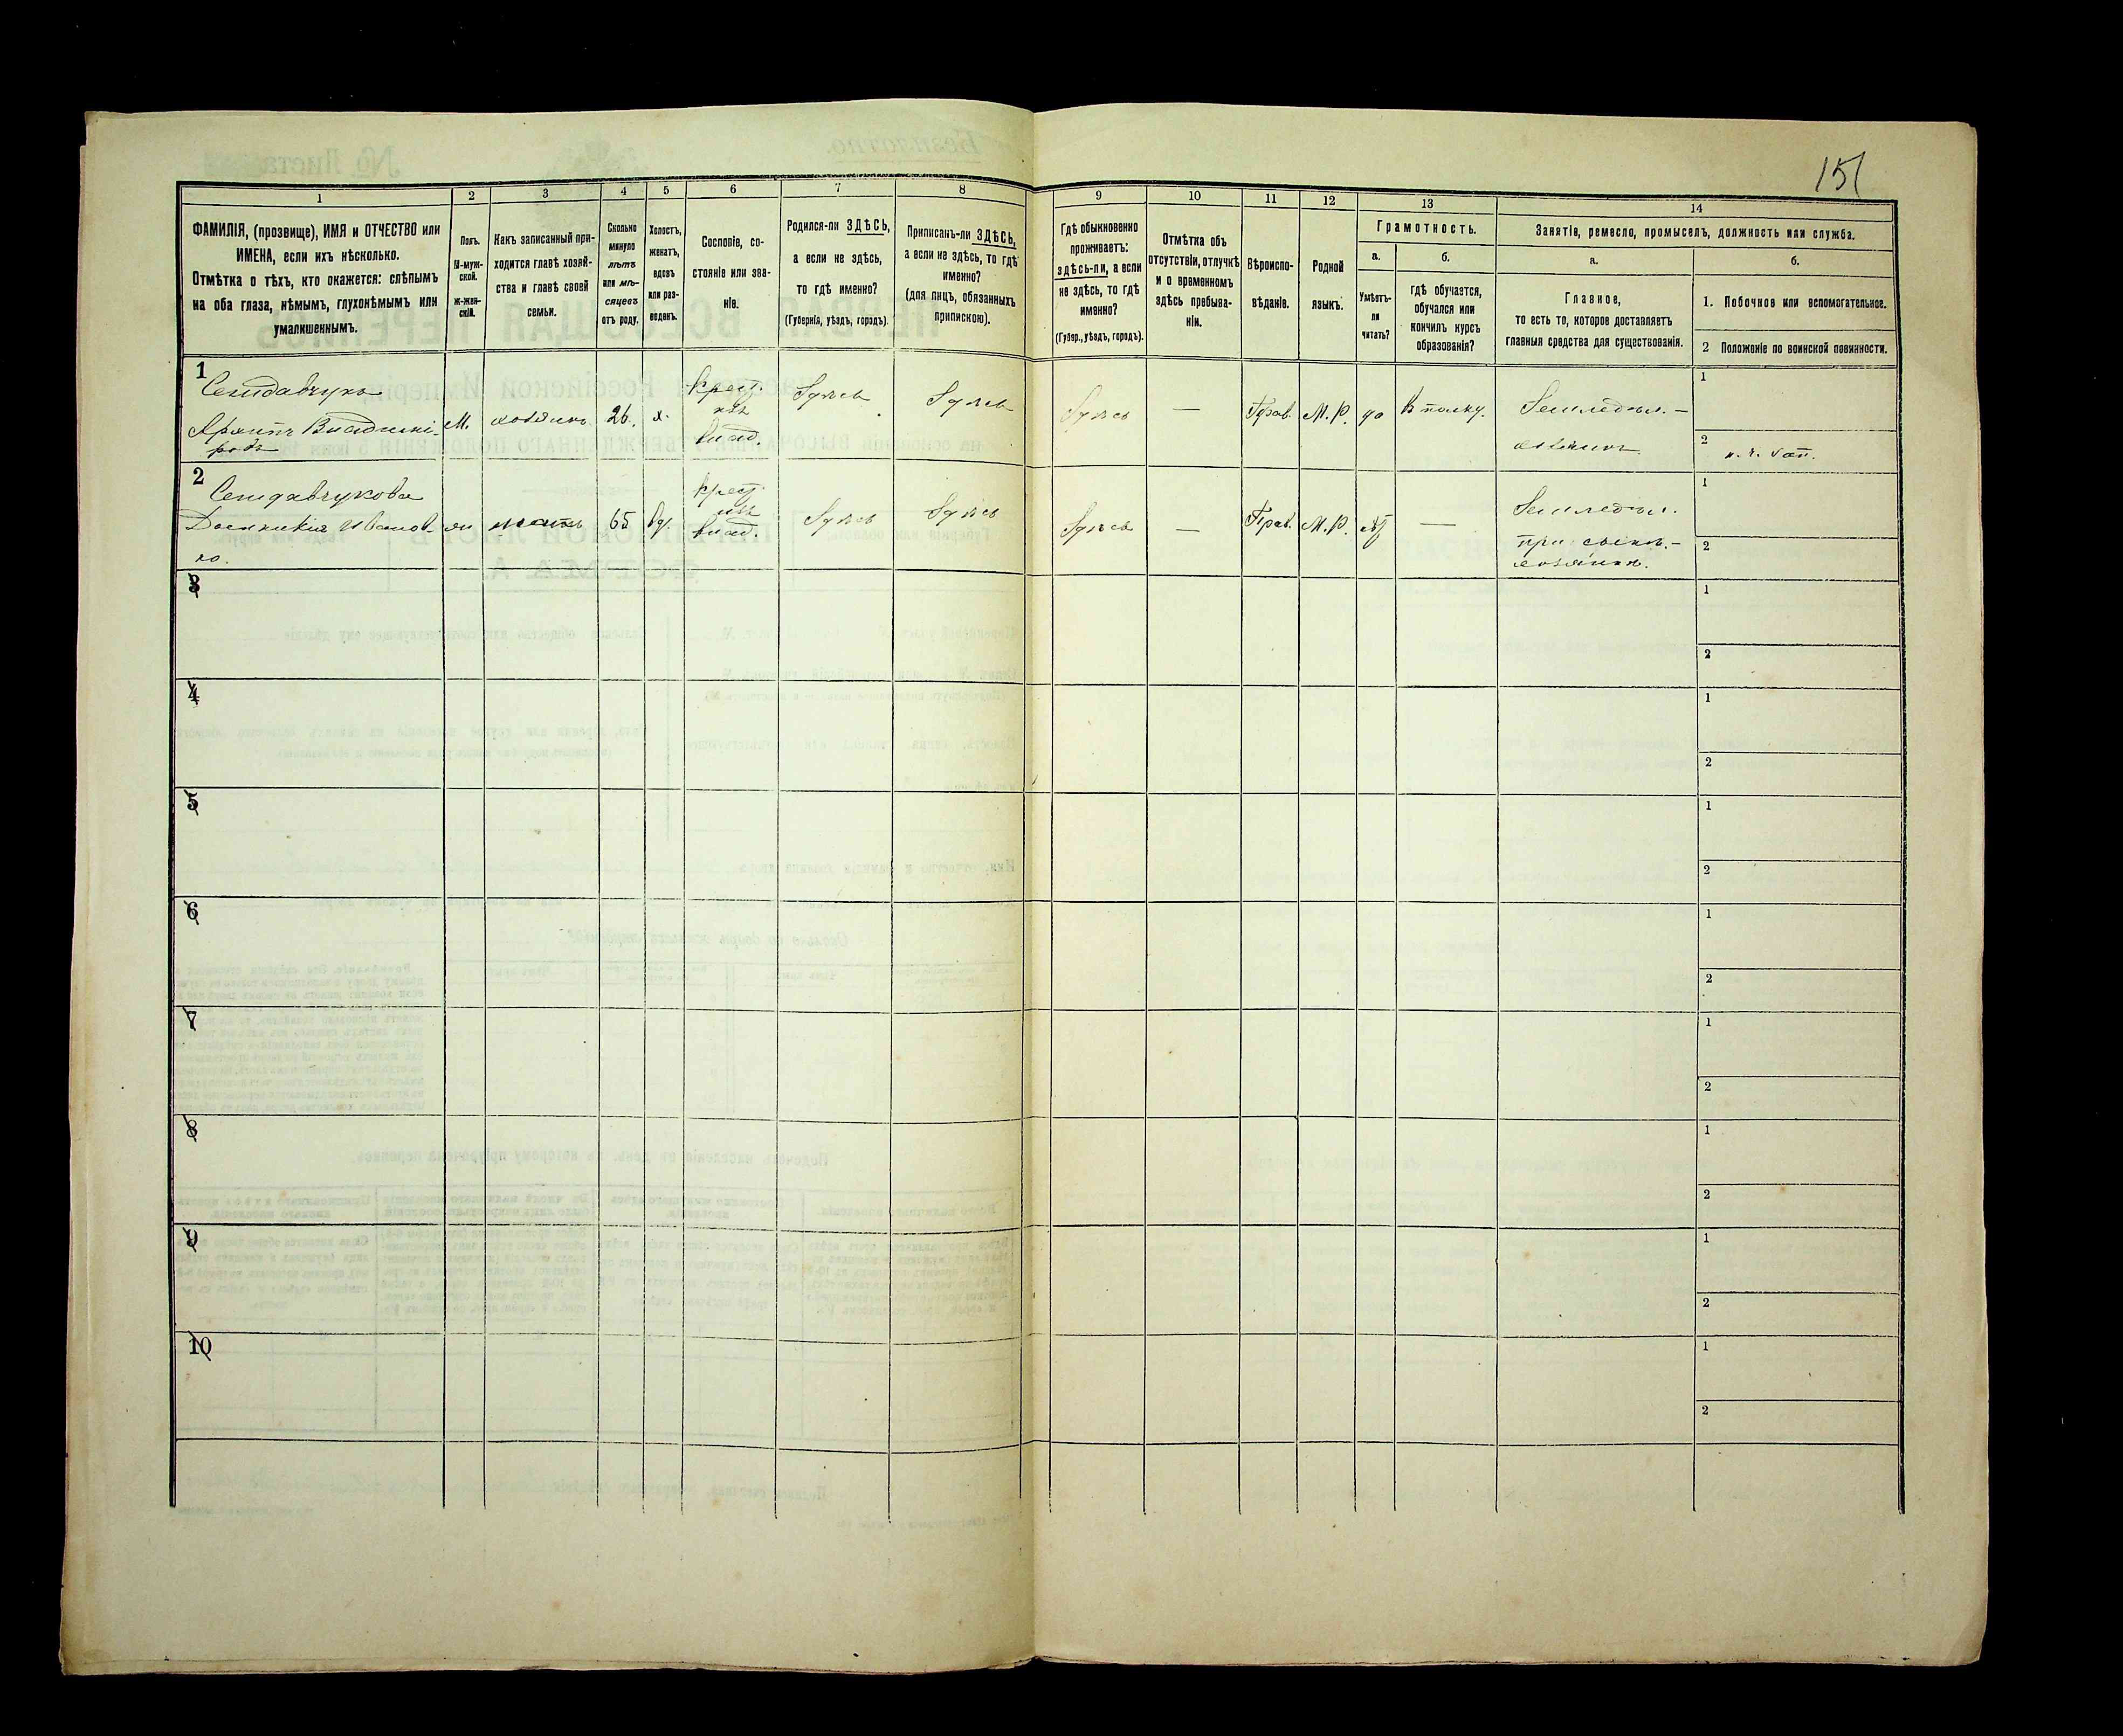 151
1
2
3
4
5
6
7
8
9
10
11
12
13
14
ФАМИЛІЯ, (прозвище), ИМЯ и ОТЧЕСТВО или
ИМЕНА, если ихъ нѣсколько.
Отмѣтка о тѣхъ, кто окажется: слѣпымъ
на оба глаза, нѣмымъ, глухонѣмымъ или
умалишеннымъ.
Полъ.
М-муж-
ской.
Ж-жен-
скій.
Какъ записанный при-
ходится главѣ хозяй-
ства и главѣ своей
семьи.
Сколько
минуло
лѣтъ
или мѣ-
сяцевъ
отъ роду.
Холостъ,
женатъ,
вдовъ
или раз-
веденъ.
Сословіе, со-
стояніе или зва-
ніе.
Родился-ли ЗДѢСЬ,
а если не здѣсь,
то гдѣ именно?
(Губернія, уѣздъ, городъ).
Приписанъ-ли ЗДѢСЬ,
а если не здѣсь, то гдѣ
именно?
(для лицъ, обязанныхъ
припискою).
Гдѣ обыкновенно
проживаетъ:
здѣсь-ли, а если
не здѣсь, то гдѣ
именно?
(Губер., уѣздъ, городъ).
Отмѣтка объ
отсутствіи, отлучкѣ
и о временномъ
здѣсь пребыва-
ніи.
Вѣроиспо-
вѣданіе.
Родной
языкъ.
Грамотность.
а.
Умѣетъ-
ли
читать?
б.
гдѣ обучается,
обучался или
кончилъ курсъ
образованія?
Занятіе, ремесло, промыселъ, должность или служба.
а.
Главное,
то есть то, которое доставляетъ
главныя средства для существованія.
б.
1. Побочное или вспомогательное.
2 Положеніе по воинской повинности.
1
М.
хозяинъ
26.
х.
Крест.
изъ
влад.
Здѣсь
Здѣсь
Здѣсь
—
Прав.
М.Р.
да
В полку.
Земледѣл. —
хозяинъ
1
2
2
65
вд.
Крест.
изъ
влад.
Здѣсь
Здѣсь
Здѣсь
—
Прав.
М.Р.
нѣт
—
Земледѣл.
при сынѣ. —
хозяинѣ.
1
2
3
1
2
4
1
2
5
1
2
6
1
2
7
1
2
8
1
2
9
1
2
10
1
2